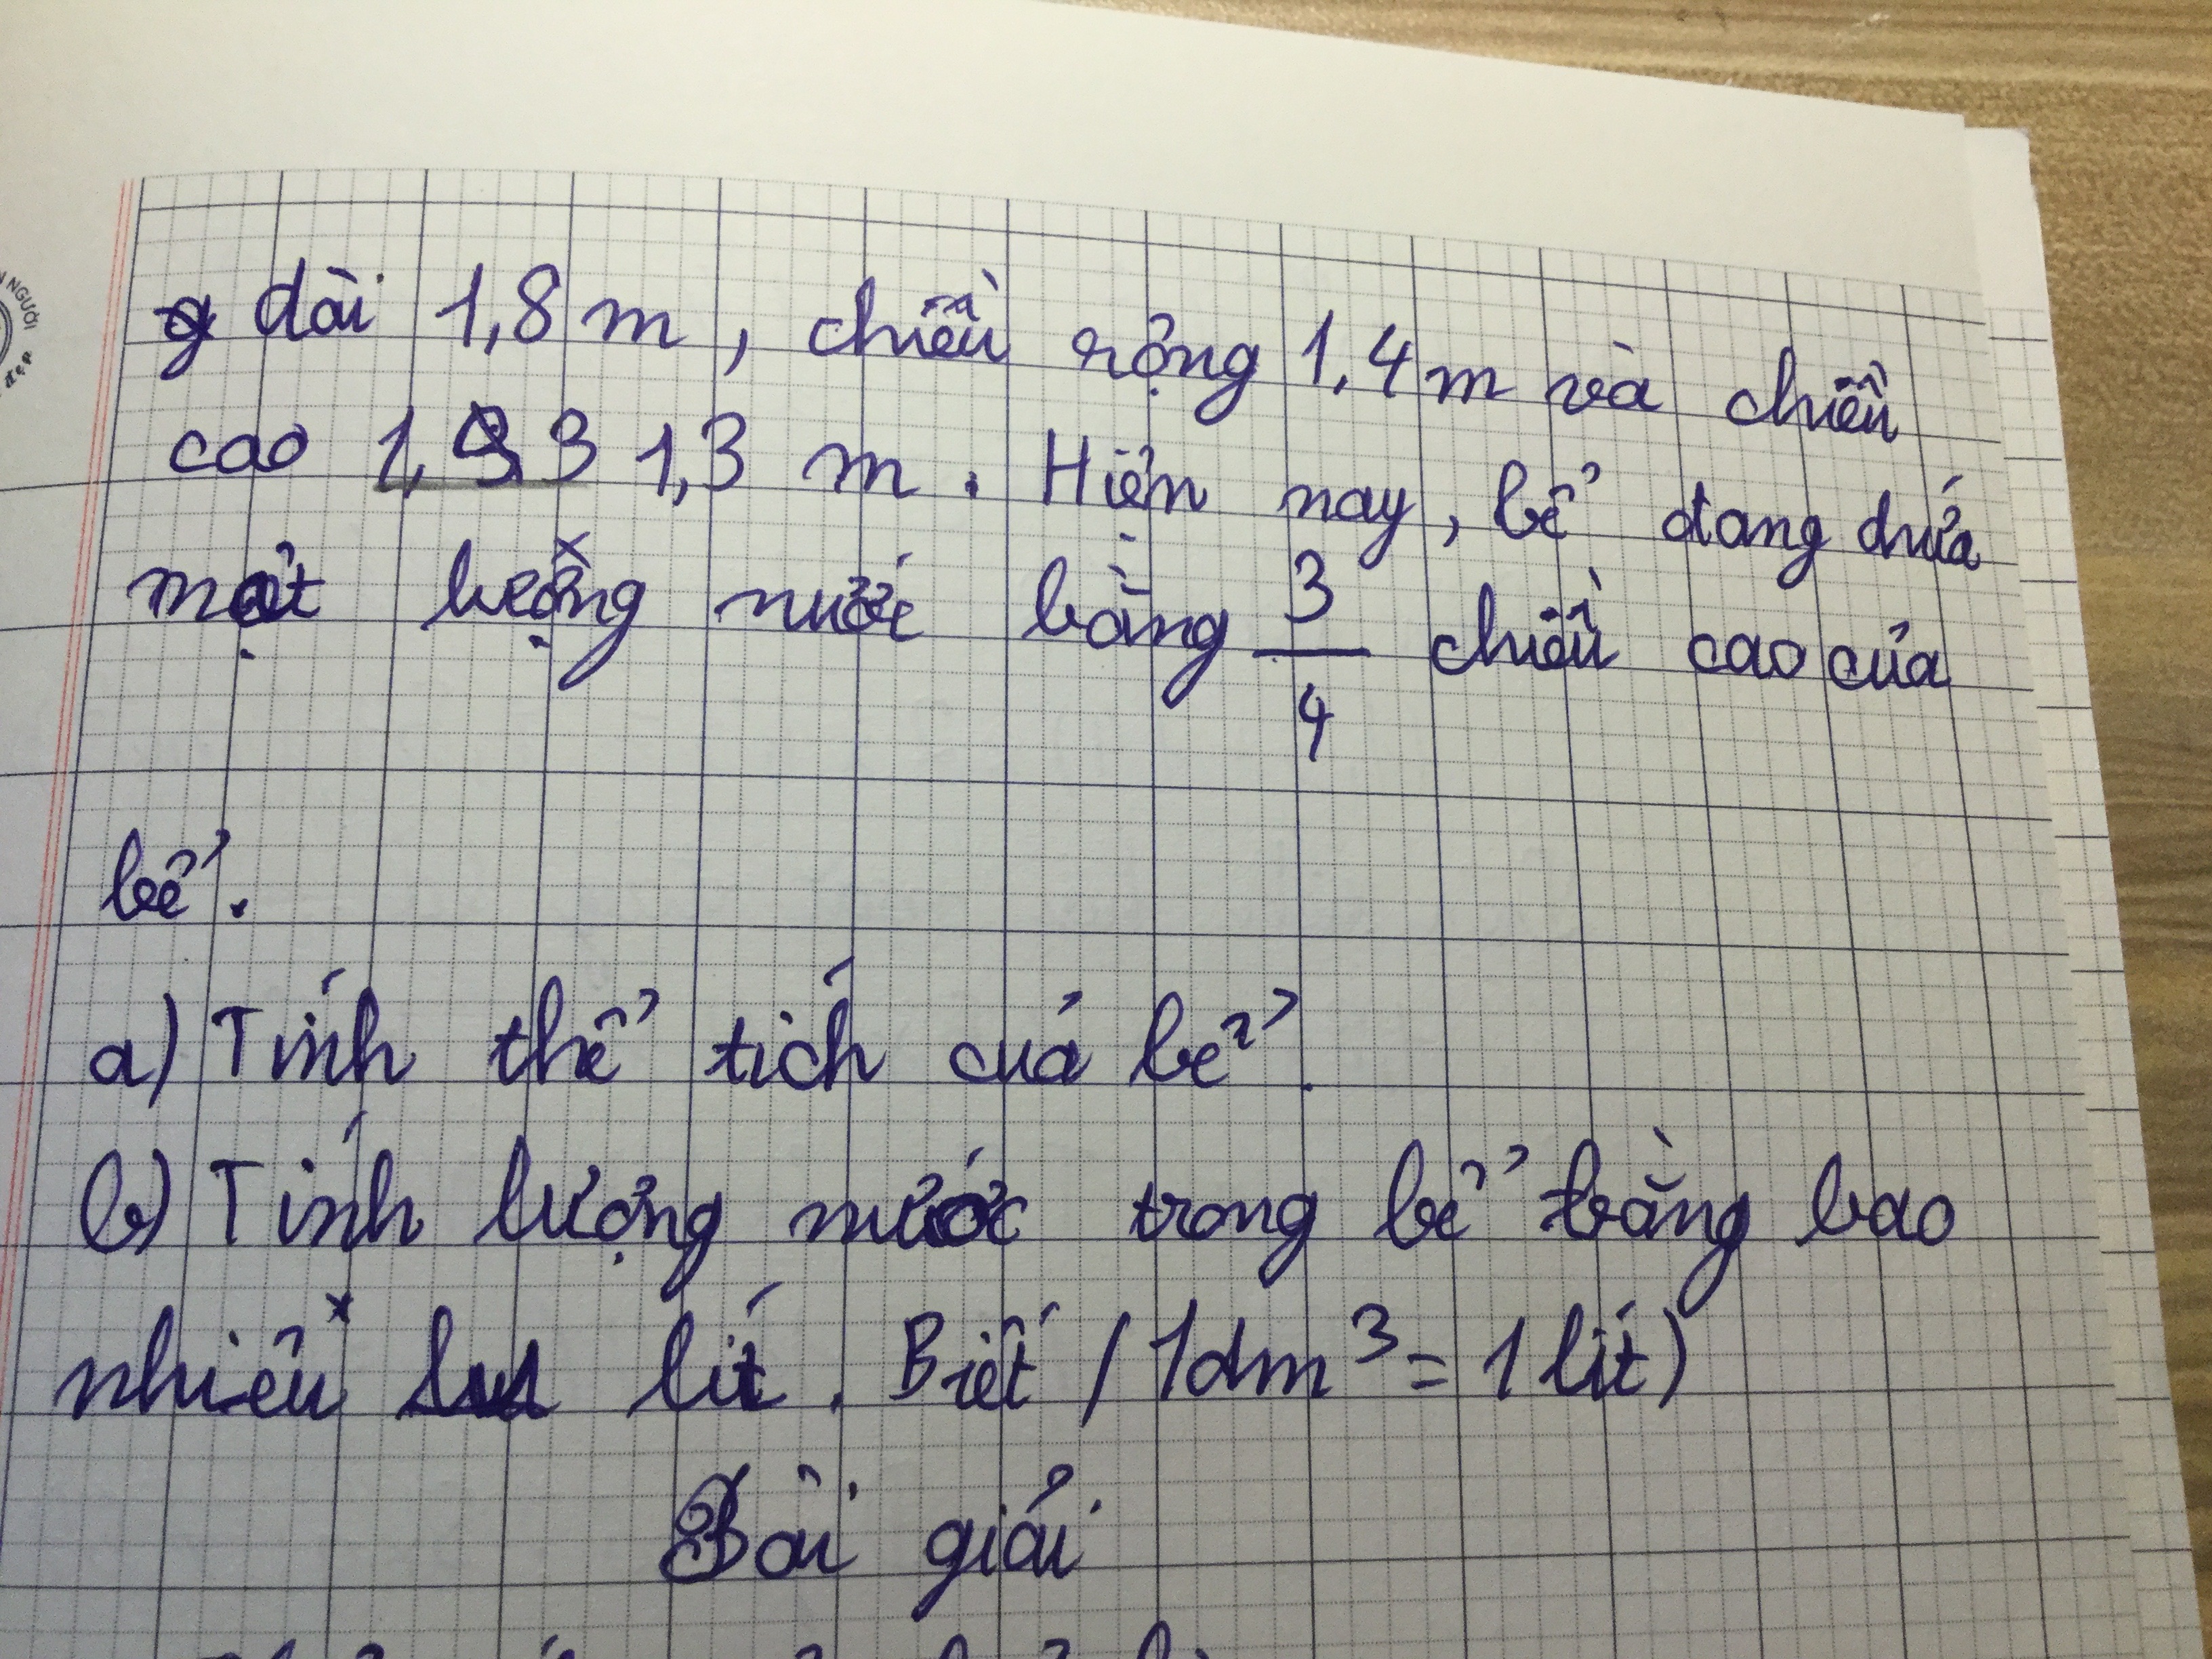 dài 1,8 m, chiều rộng 1,4 m và chiều
cao 1,3 m. Hiện nay, bể đang chứa
một lượng nước bằng 3/4 chiều cao của
bể.
a) Tính thể tích của bể.
b) Tính lượng nước trong bể bằng bao
nhiêu lít. Biết (1dm³ = 1 lít)
Bài giải
NGƯỜI
ĐẸP